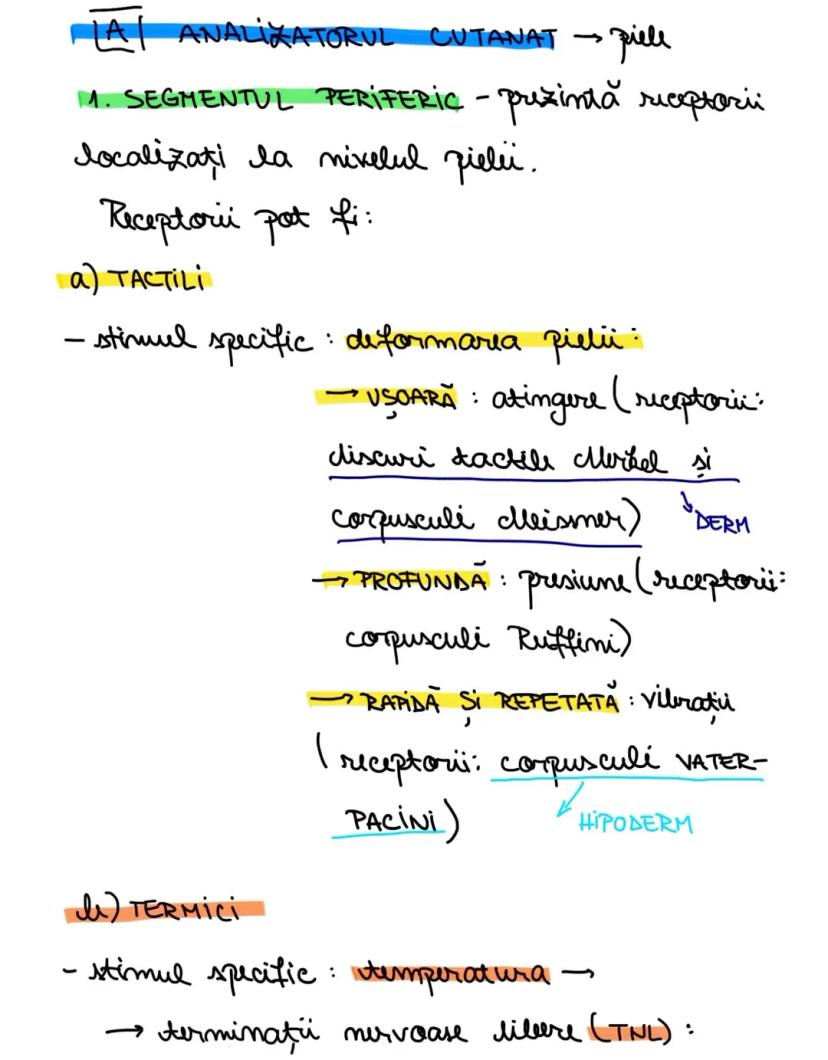 A ANALIZATORUL CUTANAT → piele
1. SEGMENTUL PERIFERIC - prezintă receptorii
localizați la nivelul pielii.
Receptorii pot fi:
a) TACTILI
- stimul specific : deformarea pielii:
→ UȘOARĂ : atingere (receptorii:
discuri tactile Merkel și
corpusculi Meissner)
DERM
→ PROFUNDĂ : presiune (receptorii:
corpusculi Ruffini)
→ RAPIDĂ ȘI REPETATĂ : vibrații
(receptorii: corpusculi VATER-
PACINI)
HIPODERM
b) TERMICI
- stimul specific : temperatura →
→ terminații nervoase libere (TNL) :